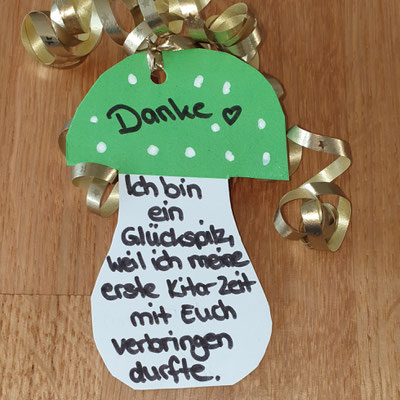 Danke ♡
Ich bin
ein
Glückspilz,
weil ich meine
erste Kita-Zeit
mit Euch
verbringen
durfte.